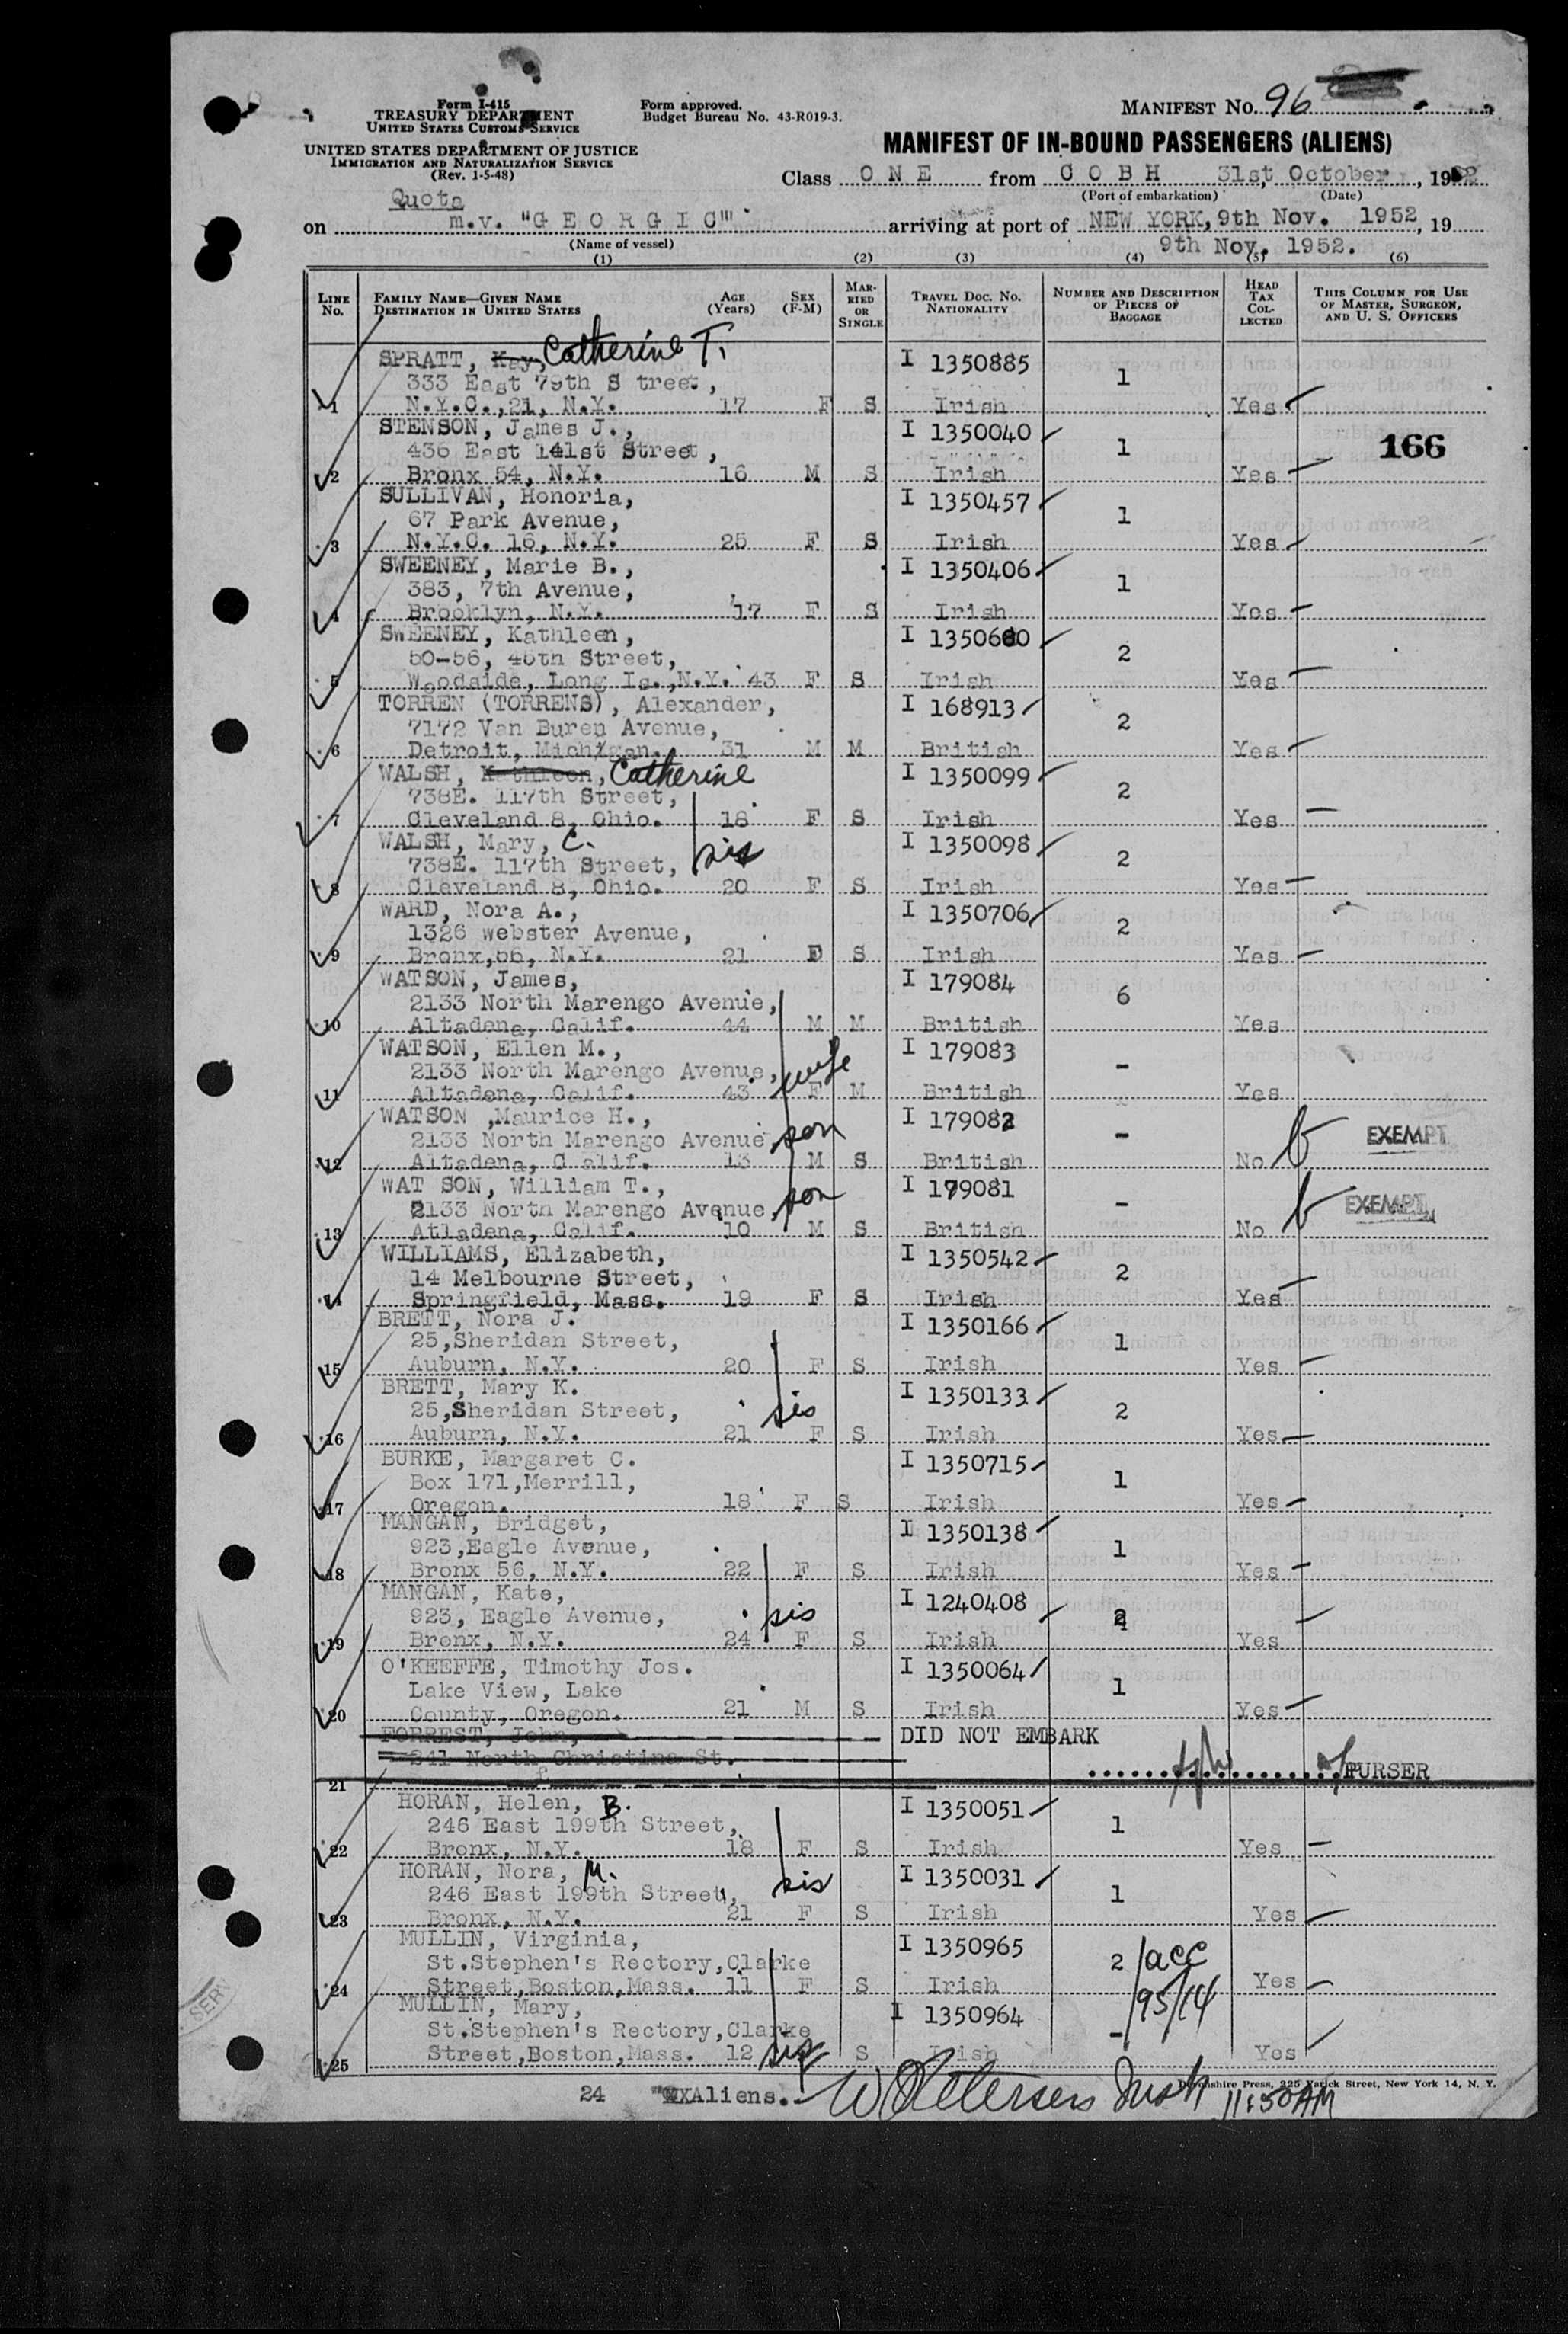 Form I-415
TREASURY DEPARTMENT
UNITED STATES CUSTOMS SERVICE
UNITED STATES DEPARTMENT OF JUSTICE
IMMIGRATION AND NATURALIZATION SERVICE
(Rev. 1-5-48)
Form approved.
Budget Bureau No. 43-R019-3.
MANIFEST NO. 96
MANIFEST OF IN-BOUND PASSENGERS (ALIENS)
Class O N E from C O B H 31st October, 1952
(Port of embarkation) (Date)
Quota
on m.v. "G E O R G I C" arriving at port of NEW YORK, 9th Nov. 1952, 19
(Name of vessel) 9th Nov. 1952.
(1) (2) (3) (4) (5) (6)
LINE No. FAMILY NAME—GIVEN NAME DESTINATION IN UNITED STATES AGE (Years) SEX (F-M) MARRIED OR SINGLE TRAVEL DOC. NO. NATIONALITY NUMBER AND DESCRIPTION OF PIECES OF BAGGAGE HEAD TAX COLLECTED THIS COLUMN FOR USE OF MASTER, SURGEON, AND U. S. OFFICERS
SPRATT, Kay, Catherine T. I 1350885
333 East 79th S treet, 1
1 N.Y.C.,21, N.Y. 17 F S Irish Yes
STENSON, James J., I 1350040
436 East 141st Street, 1 166
2 Bronx 54, N.Y. 16 M S Irish Yes
SULLIVAN, Honoria, I 1350457
67 Park Avenue, 1
3 N.Y.C. 16, N.Y. 25 F S Irish Yes
SWEENEY, Marie B., I 1350406
383, 7th Avenue, 1
4 Brooklyn, N.Y. 17 F S Irish Yes
SWEENEY, Kathleen, I 1350680
50-56, 46th Street, 2
5 Woodside, Long Is.,N.Y. 43 F S Irish Yes
TORREN (TORRENS), Alexander, I 168913
7172 Van Buren Avenue, 2
6 Detroit, Michigan. 31 M M British Yes
WALSH, Kathleen, Catherine I 1350099
738E. 117th Street, 2
7 Cleveland 8, Ohio. 18 F S Irish Yes
WALSH, Mary, C. I 1350098
738E. 117th Street, sis 2
8 Cleveland 8, Ohio. 20 F S Irish Yes
WARD, Nora A., I 1350706
1326 webster Avenue, 2
9 Bronx,56, N.Y. 21 F S Irish Yes
WATSON, James, I 179084
2133 North Marengo Avenue, 6
10 Altadena, Calif. 44 M M British Yes
WATSON, Ellen M., I 179083
2133 North Marengo Avenue, wife -
11 Altadena, Calif. 43 F M British Yes
WATSON ,Maurice H., I 179082
2133 North Marengo Avenue, son - EXEMPT
12 Altadena, C alif. 13 M S British No
WAT SON, William T., I 179081
2133 North Marengo Avenue, son - EXEMPT
13 Atladena, Calif. 10 M S British No
WILLIAMS, Elizabeth, I 1350542
14 Melbourne Street, 2
14 Springfield, Mass. 19 F S Irish Yes
BRETT, Nora J. I 1350166
25,Sheridan Street, 1
15 Auburn, N.Y. 20 F S Irish Yes
BRETT, Mary K. I 1350133
25,Sheridan Street, sis 2
16 Auburn, N.Y. 21 F S Irish Yes
BURKE, Margaret C. I 1350715
Box 171,Merrill, 1
17 Oregon. 18 F S Irish Yes
MANGAN, Bridget, I 1350138
923,Eagle Avenue, 1
18 Bronx 56, N.Y. 22 F S Irish Yes
MANGAN, Kate, I 1240408
923, Eagle Avenue, sis 2
19 Bronx, N.Y. 24 F S Irish Yes
O'KEEFFE, Timothy Jos. I 1350064
Lake View, Lake 1
20 County, Oregon. 21 M S Irish Yes
FORREST, John, DID NOT EMBARK
241 North Christina St.
21 PURSER
HORAN, Helen, B. I 1350051
246 East 199th Street, 1
22 Bronx, N.Y. 18 F S Irish Yes
HORAN, Nora, M. I 1350031
246 East 199th Street, sis 1
23 Bronx, N.Y. 21 F S Irish Yes
MULLIN, Virginia, I 1350965
St.Stephen's Rectory,Clarke 2 acc
24 Street,Boston,Mass. 11 F S Irish 95/14 Yes
MULLIN, Mary, I 1350964
St.Stephen's Rectory,Clarke -
25 Street,Boston,Mass. 12 sis F S Irish Yes
Devonshire Press, 225 Varick Street, New York 14, N. Y.
24 Aliens. 11:50AM